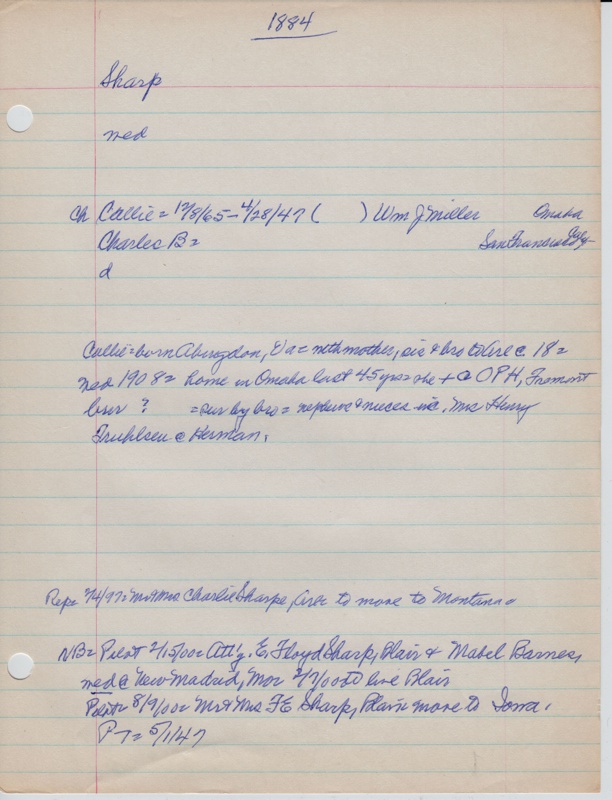 1884
Sharp
med
Ch Callie = 12/8/65 - 4/28/47 ( ) Wm J Miller Omaha
Charles B = San Francisco
d
Callie = born Abingdon, Va = with mother, sis & bro to Are @ 18 =
med 1908 = home in Omaha last 45 yrs = she + @ OPH, Fremont
bur ? = sur by bro = nephews & nieces inc. Mrs Henry
Truhlsen @ Herman.
Rep = Mr & Mrs Charlie Sharpe, Arc to move to Montana.
NB = Pilot 2/15/00 = Att'y. E. Floyd Sharp, Blair & Mabel Barnes,
med @ New Madrid, Mo = 2/7/00 to live Blair
Pilot = 8/9/00 = Mr & Mrs F E Sharp, Blair move to Iowa.
P T = 5/1/47